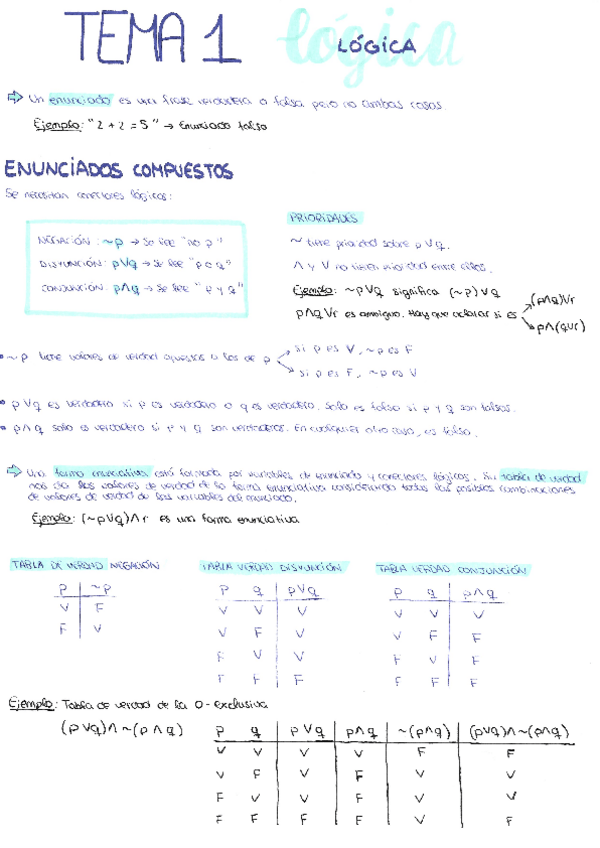 TEMA 1 lógica LÓGICA
⇒ Un enunciado es una frase verdadera o falsa pero no ambas cosas
Ejemplo: "2+2=5" → Enunciado falso
ENUNCIADOS COMPUESTOS
Se necesitan conectores lógicos:
NEGACIÓN: ~p → Se lee "no p"
DISYUNCIÓN: p∨q → Se lee "p o q"
CONJUNCIÓN: p∧q → Se lee "p y q"
PRIORIDADES
~ tiene prioridad sobre p∨q.
∧ y ∨ no tienen prioridad entre ellos.
Ejemplo: ~p∨q significa (~p)∨q
p∧q∨r es ambiguo. Hay que aclarar si es
(p∧q)∨r
p∧(q∨r)
• ~p tiene valores de verdad opuestos a los de p
si p es V, ~p es F
si p es F, ~p es V
• p∨q es verdadero si p es verdadero o q es verdadero. Solo es falso si p y q son falsos.
• p∧q solo es verdadero si p y q son verdaderos. En cualquier otro caso, es falso.
⇒ Una forma enunciativa está formada por variables de enunciado y conectores lógicos. Su tabla de verdad
nos da los valores de verdad de la forma enunciativa considerando todas las posibles combinaciones
de valores de verdad de las variables del enunciado.
Ejemplo: (~p∨q)∧r es una forma enunciativa
TABLA DE VERDAD NEGACIÓN
p ~p
V F
F V
TABLA VERDAD DISYUNCIÓN
p q p∨q
V V V
V F V
F V V
F F F
TABLA VERDAD CONJUNCIÓN
p q p∧q
V V V
V F F
F V F
F F F
Ejemplo: Tabla de verdad de la O-exclusiva
(p∨q)∧~(p∧q)
p q p∨q p∧q ~(p∧q) (p∨q)∧~(p∧q)
V V V V F F
V F V F V V
F V V F V V
F F F F V F